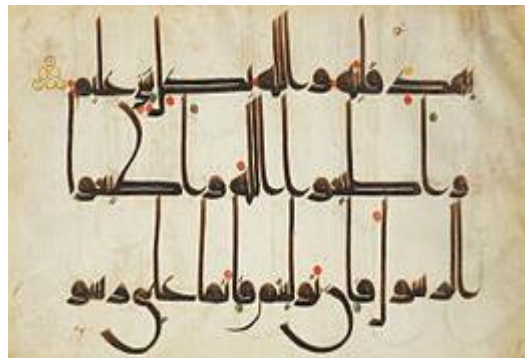 يهد قلبه والله بكل شىء عليم
واطيعوا الله واطيعوا
الرسول فان توليتم فانما على رسو